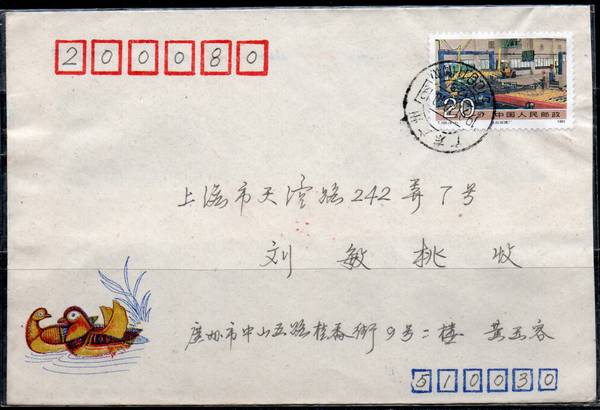 200080
20分 中国人民邮政
上海市天潼路242弄7号
刘敏桃收
广州市中山五路桂香街9号二楼 黄玉容
510030